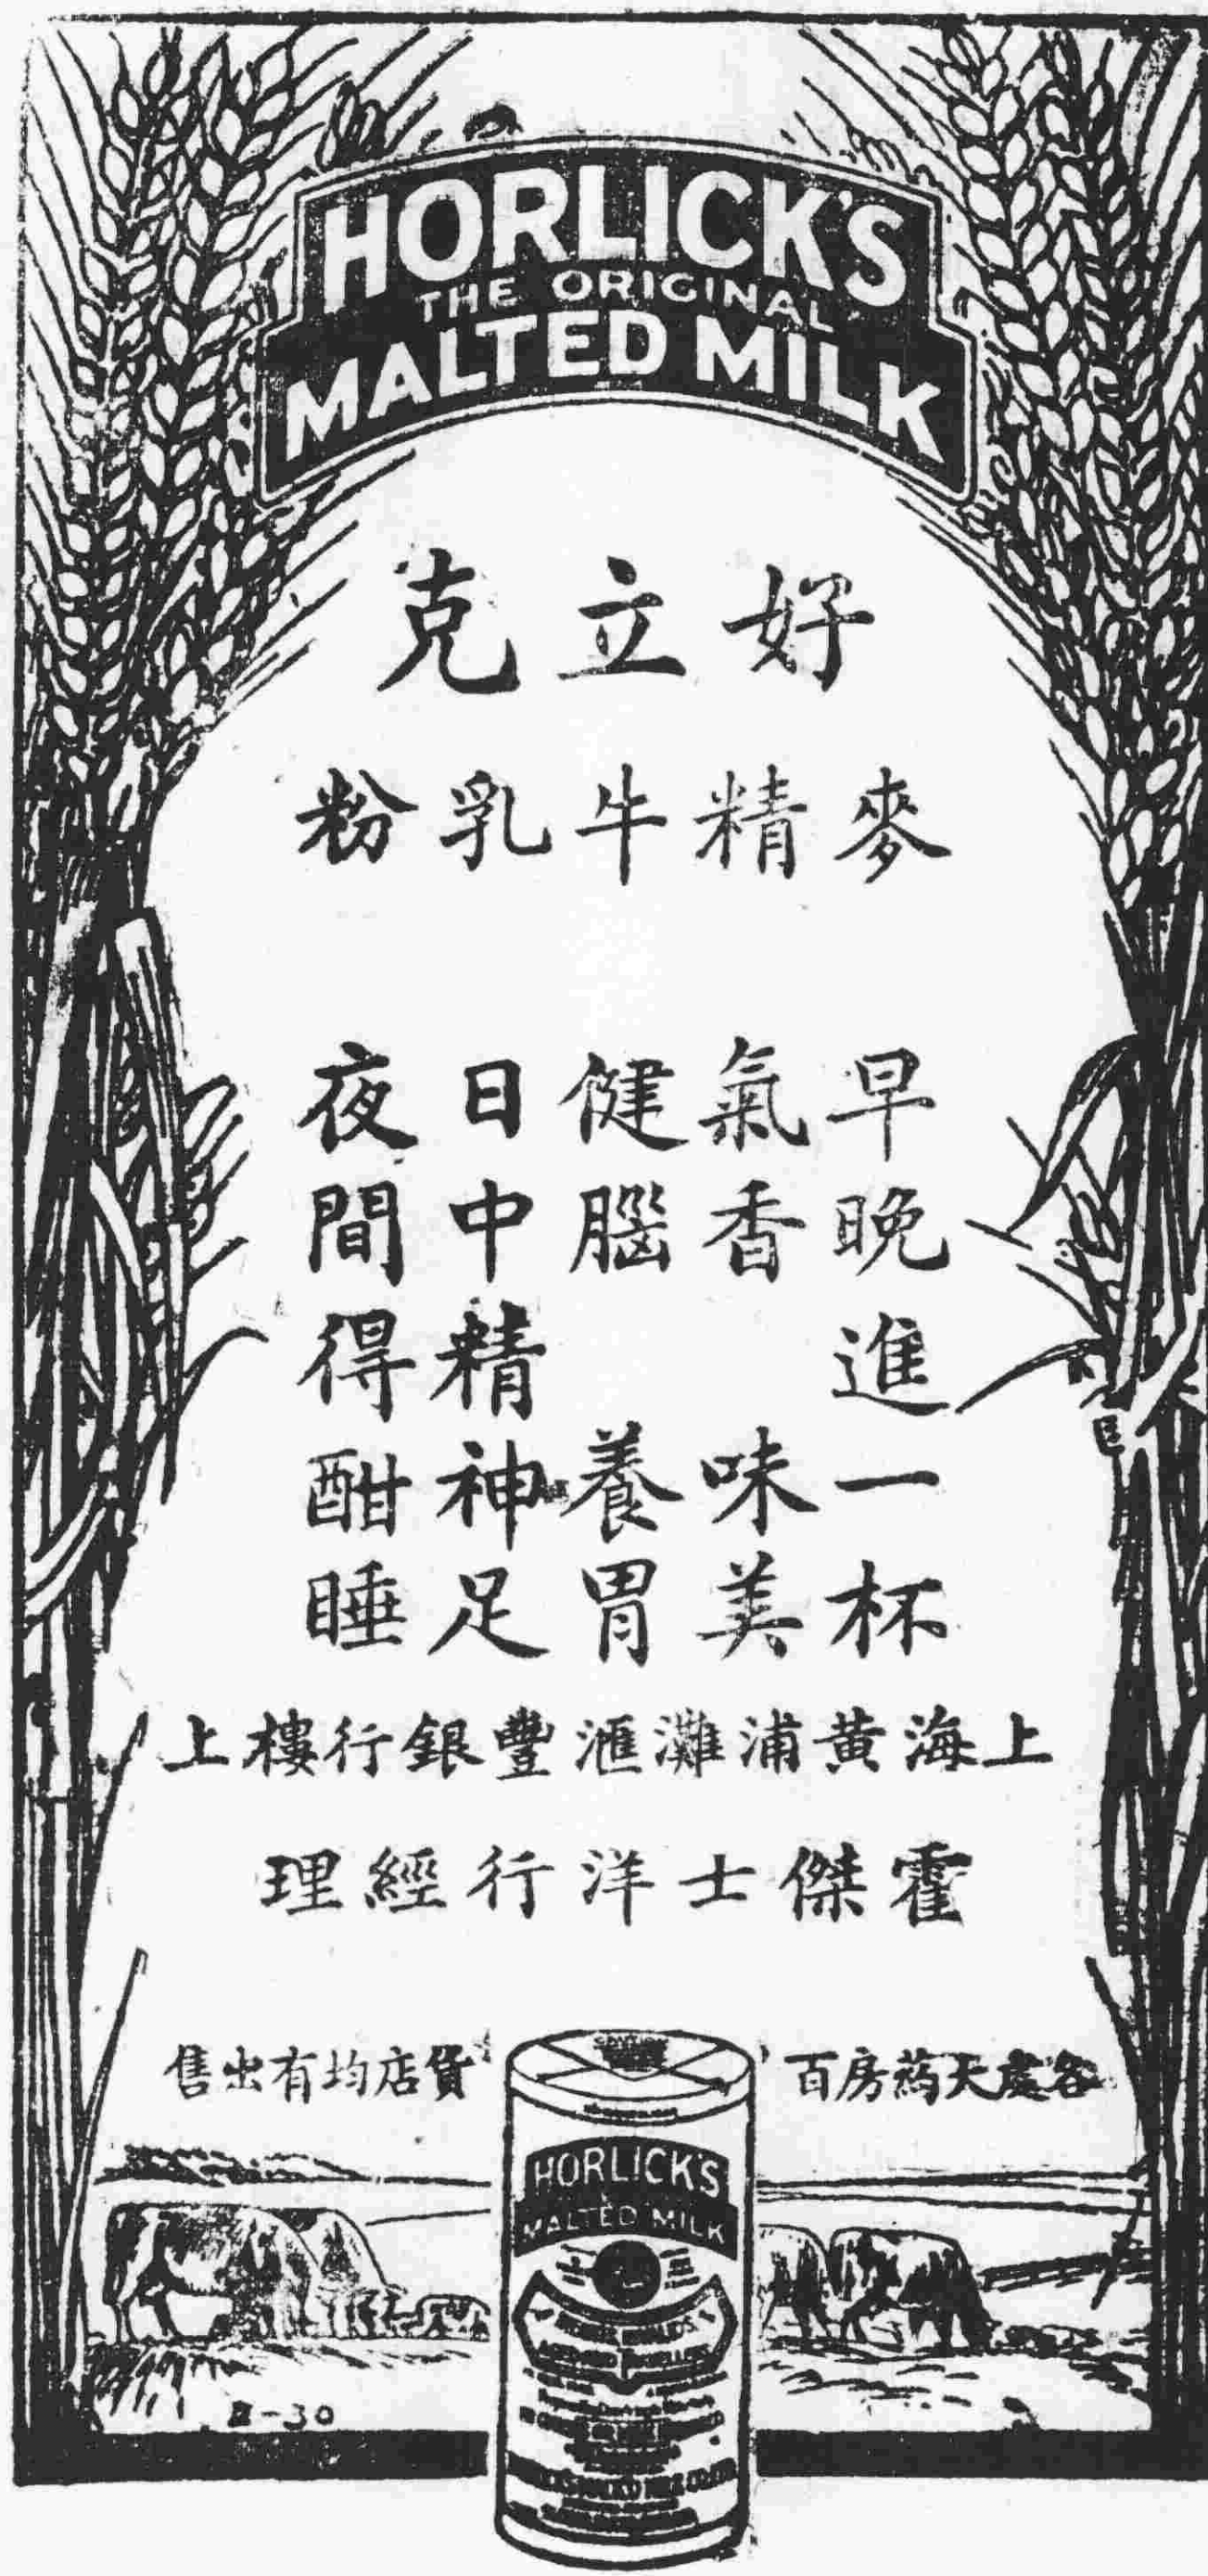 HORLICK'S
THE ORIGINAL
MALTED MILK
好立克
麥精牛乳粉
早晚進一杯
氣香 味美
健腦 養胃
日中精神足
夜間得酣睡
上海黃浦灘滙豐銀行樓上
霍傑士洋行經理
各處大藥房百貨店均有出售
HORLICK'S
MALTED MILK